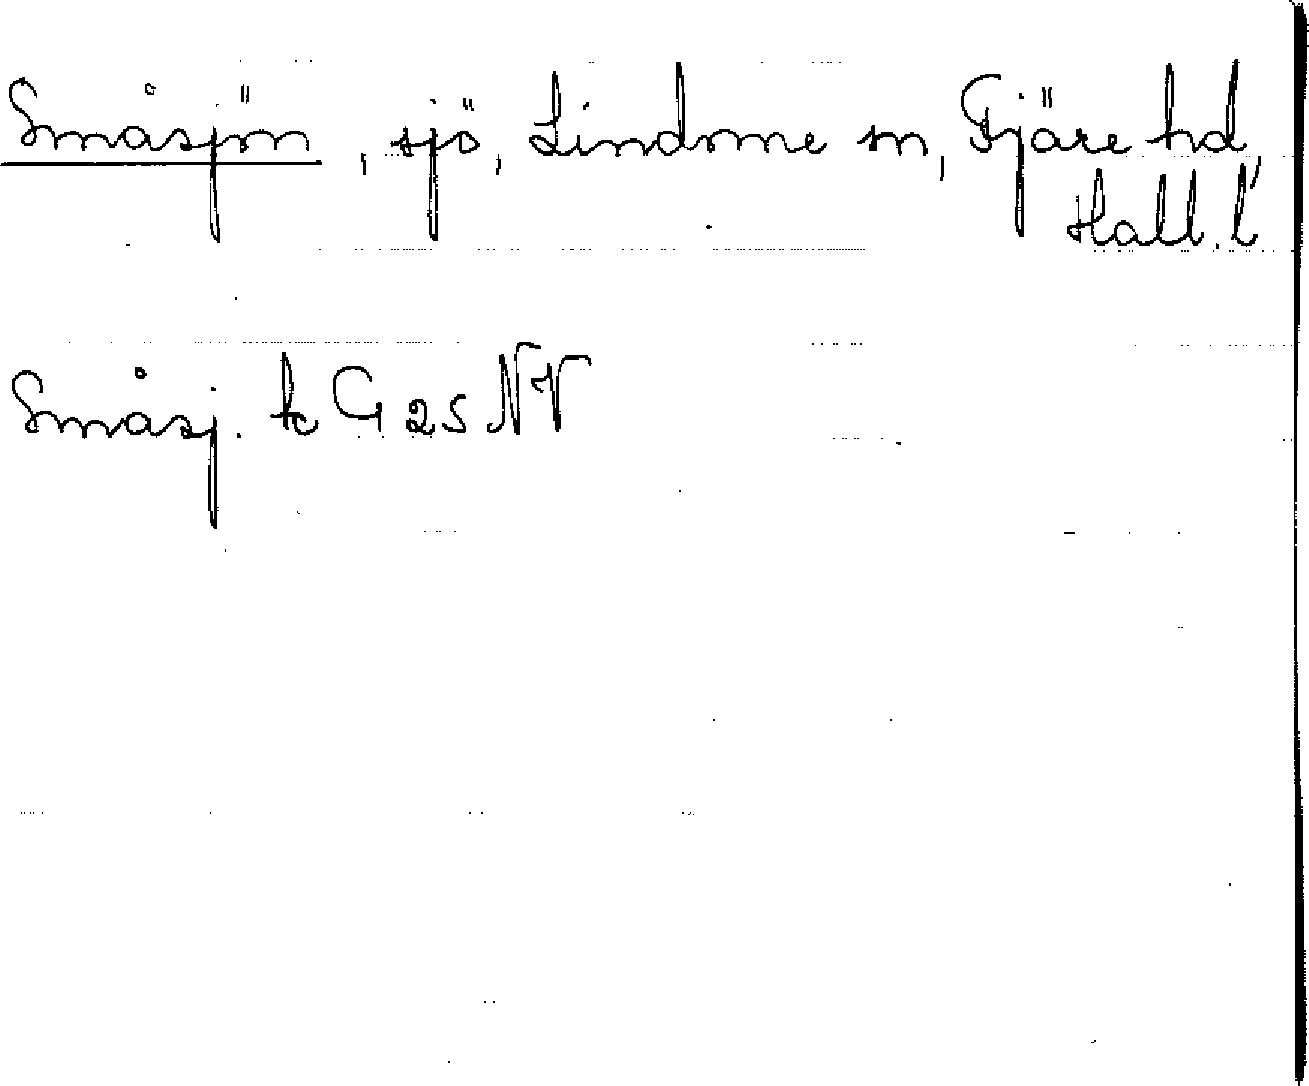 Småsjön, sjö, Lindome sn, Fjäre hd,
Hall. l
Småsj. tc G 25 NV